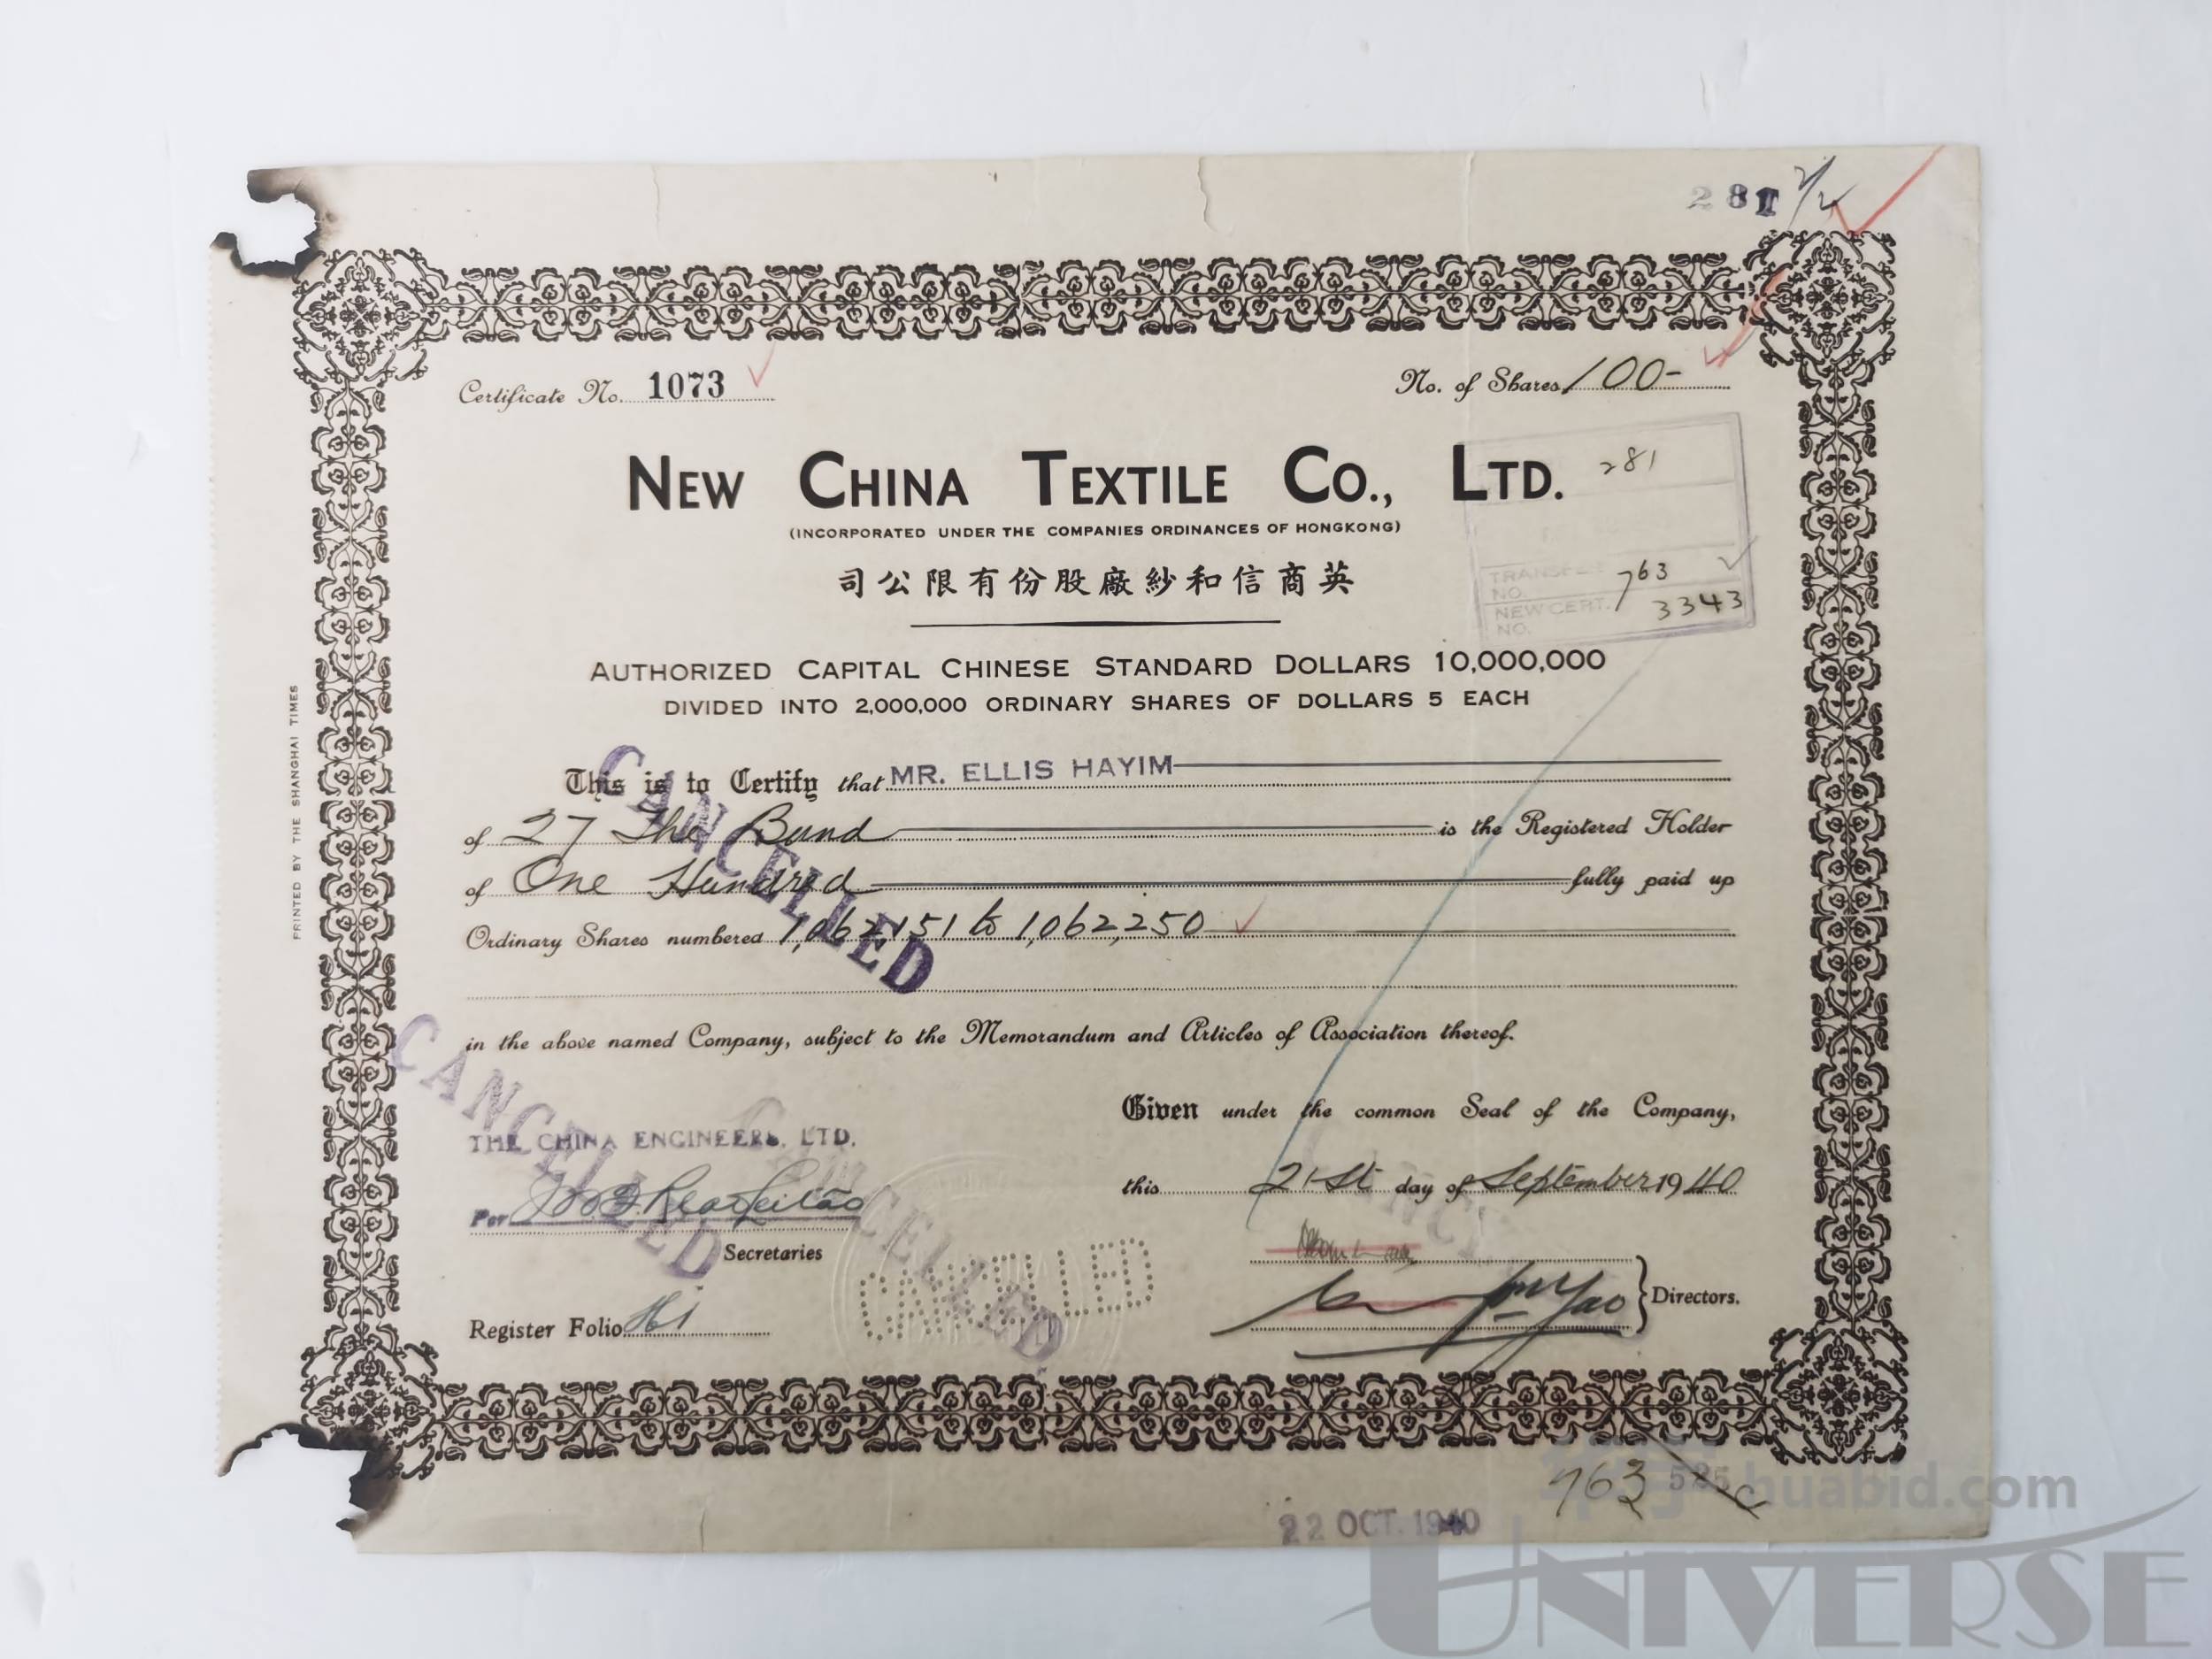 281
Certificate No. 1073
No. of Shares 100-
NEW CHINA TEXTILE CO., LTD.
281
(INCORPORATED UNDER THE COMPANIES ORDINANCES OF HONGKONG)
司公限有份股廠紗和信商英
TRANSFER NO. 763
NEW CERT. NO. 3343
AUTHORIZED CAPITAL CHINESE STANDARD DOLLARS 10,000,000
DIVIDED INTO 2,000,000 ORDINARY SHARES OF DOLLARS 5 EACH
This is to Certify that MR. ELLIS HAYIM
of 27 The Bund is the Registered Holder
of One Hundred fully paid up
Ordinary Shares numbered 1,062,151 to 1,062,250
CANCELLED
in the above named Company, subject to the Memorandum and Articles of Association thereof.
CANCELLED
Given under the common Seal of the Company,
THE CHINA ENGINEERS, LTD.
this 21st day of September 1940
Per
Secretaries
CANCELLED
CANCELLED
Directors.
Register Folio 161
PRINTED BY THE SHANGHAI TIMES
763
525
22 OCT. 1940
huabid.com
UNIVERSE